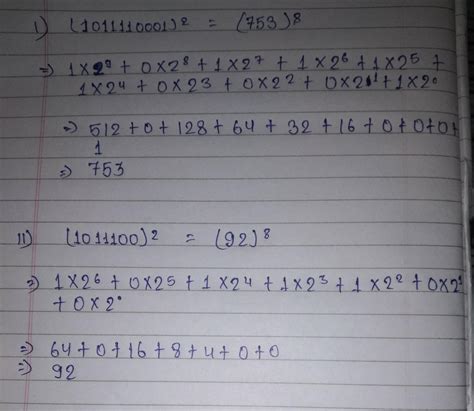 i) (1011110001)² = (753)⁸
⇒ 1×2⁹ + 0×2⁸ + 1×2⁷ + 1×2⁶ + 1×2⁵ +
1×2⁴ + 0×2³ + 0×2² + 0×2¹ + 1×2⁰
⇒ 512 + 0 + 128 + 64 + 32 + 16 + 0 + 0 + 0 +
1
⇒ 753
II) (1011100)² = (92)⁸
⇒ 1×2⁶ + 0×2⁵ + 1×2⁴ + 1×2³ + 1×2² + 0×2¹
+ 0×2⁰
⇒ 64 + 0 + 16 + 8 + 4 + 0 + 0
⇒ 92